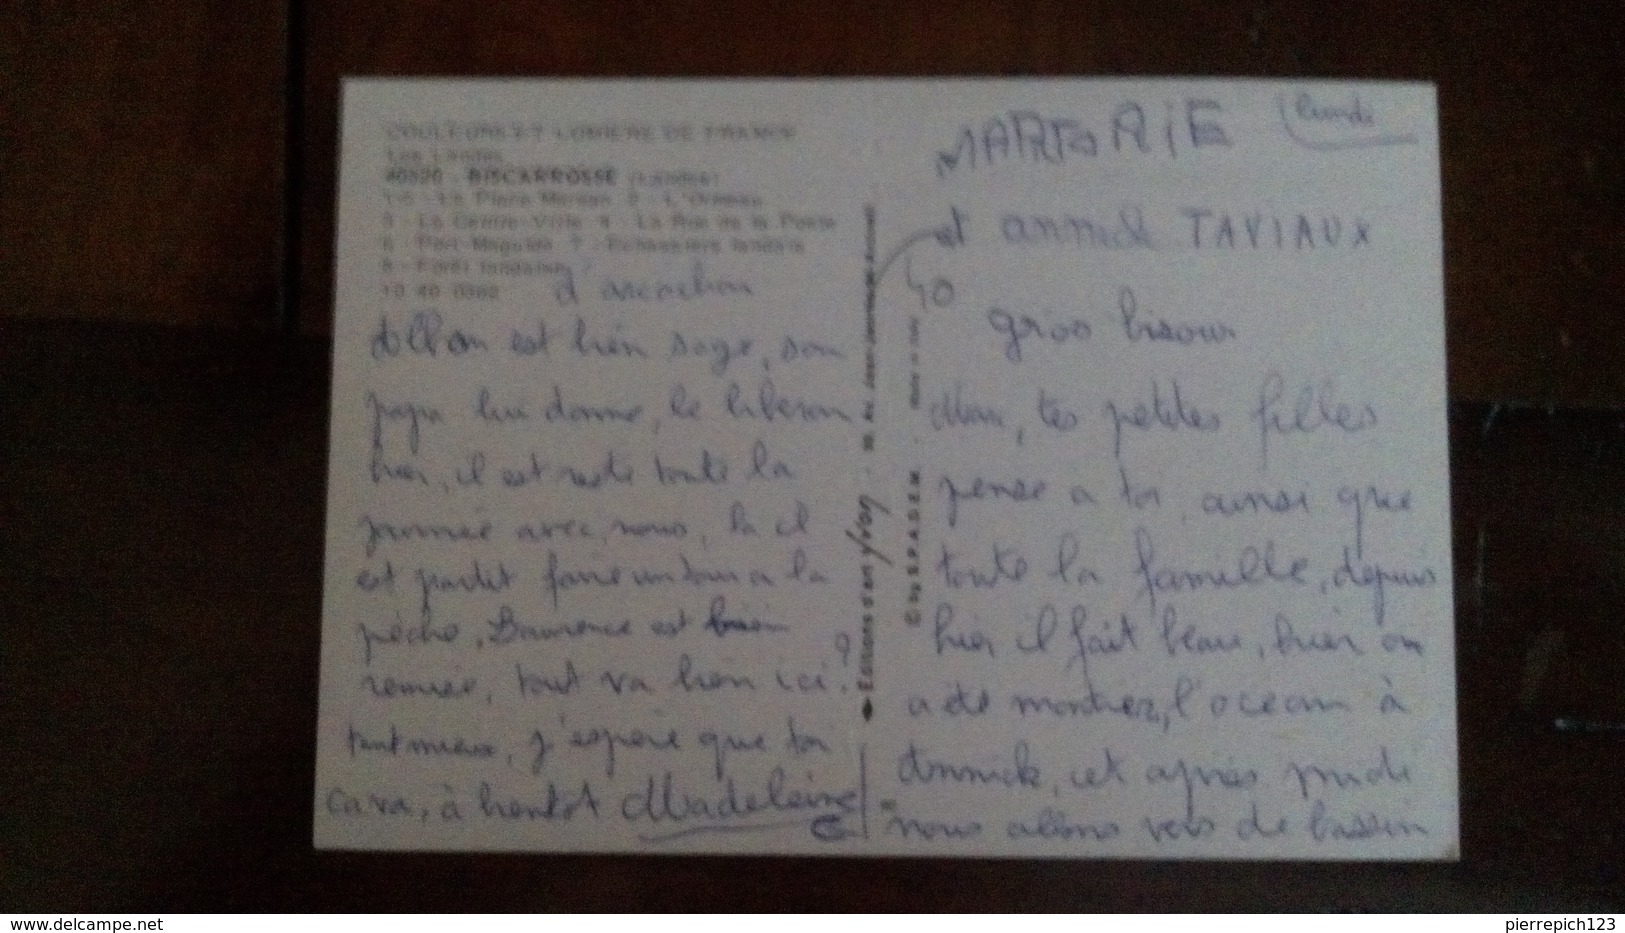 COULEURS ET LUMIERE DE FRANCE
Les Landes
40520 - BISCARROSSE (Landes)
3 - Le Centre Ville 4 - La Rue de la Poste
8 - Forêt landaise
10 40 0362
Editions d'art yvon
© by S.P.A.D.E.M.
MARJORIE
lundi
et annick TAVIAUX
40
gros bisous
Mam, tes petites filles
pense a toi, ainsi que
toute la famille, depuis
hier il fait beau, hier on
a été montrer, l'océan à
annick, et après midi
nous allons vers le bassin
d'arcachon
est bien sage, son
papa lui donne, le biberon
hier, il est resté toute la
journée avec, nous, la il
est partit faire un tour a la
pêche, Laurence est bien
remise, tout va bien ici,
tant mieux, j'espère que toi
ca va, à bientôt Madeleine
delcampe.net
pierrepich123